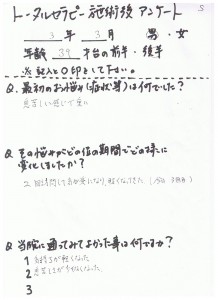 トータルセラピー施術後アンケート
3年 3月 男・女
年齢 39 才台の前半・後半
※記入と○印をして下さい。
Q. 最初のお悩み(症状等)は何でした?
息苦しい
Q. そのお悩みがどの位の期間でどの様に
変化しましたか?
2回
Q. 当院に通ってみてよかった事は何ですか?
1 が軽くなった
2 息苦しさが少なくなった
3